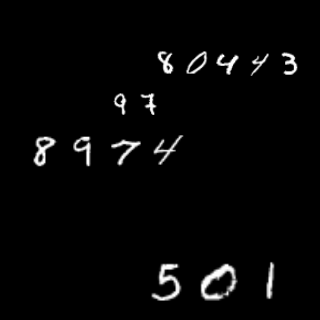 80443
97
8974
501